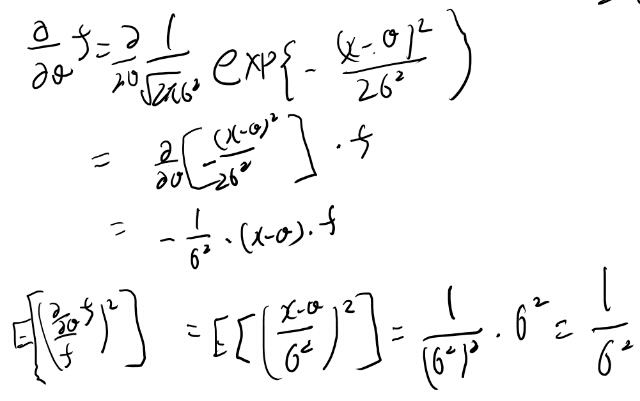 ∂/∂θ f = ∂/∂θ 1/√(2πσ²) exp{ - (x-θ)²/2σ² )
= ∂/∂θ [ - (x-θ)²/2σ² ] · f
= - 1/σ² · (x-θ) · f
E[ ( (∂/∂θ f)/f )² ] = E[ ( (x-θ)/σ² )² ] = 1/(σ²)² · σ² = 1/σ²